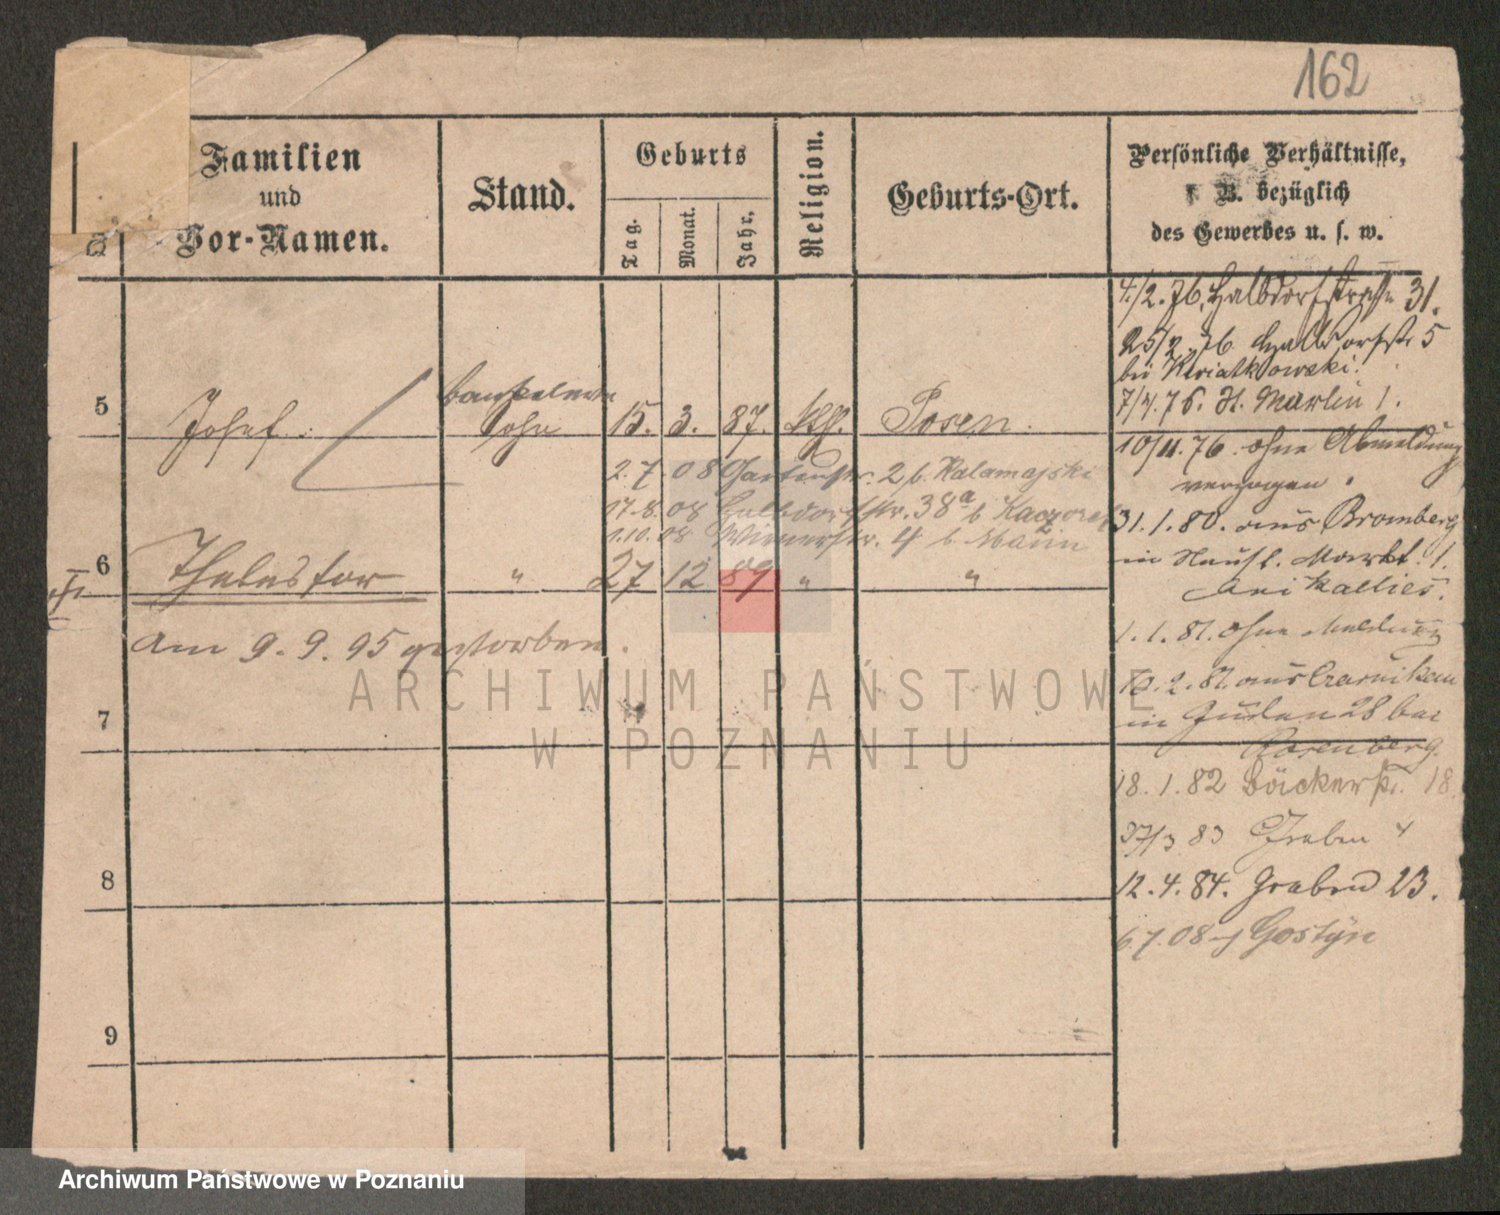 162
Familien
und
Vor-Namen.
Stand.
Geburts
Tag.
Monat.
Jahr.
Religion.
Geburts-Ort.
Persönliche Verhältnisse,
z. B. bezüglich
des Gewerbes u. s. w.
4./2.76. Halbdorfstraße 31.
25/2. 76. Halbdorfstr 5
bei Kwiatkowski.
7/4.76. St. Martin 1.
5 Josef Sohn 15. 3. 87. kth. Posen.
10/11.76. ohne Abmeldung
verzogen.
2. 7. 08 Gartenstr. 2 b. Kalamajski
17.8.08 Halbdorfstr. 38a b
1.10.08 Wienerstr. 4 b.
31.1.80. aus Bromberg
in Markt 1.
bei Kallies.
6 " 27 12 89 " "
am 9. 9. 95 gestorben.
1.1.81. ohne Meldung
10.2.81. aus Czarnikau
in Juden 28 bei
Rosenberg.
7
18.1.82 Bäckerstr. 18.
27/3 83 Graben 4
8
12.4.84. Graben 23.
6.7.08 Gostyn
9
ARCHIWUM PAŃSTWOWE
W POZNANIU
Archiwum Państwowe w Poznaniu